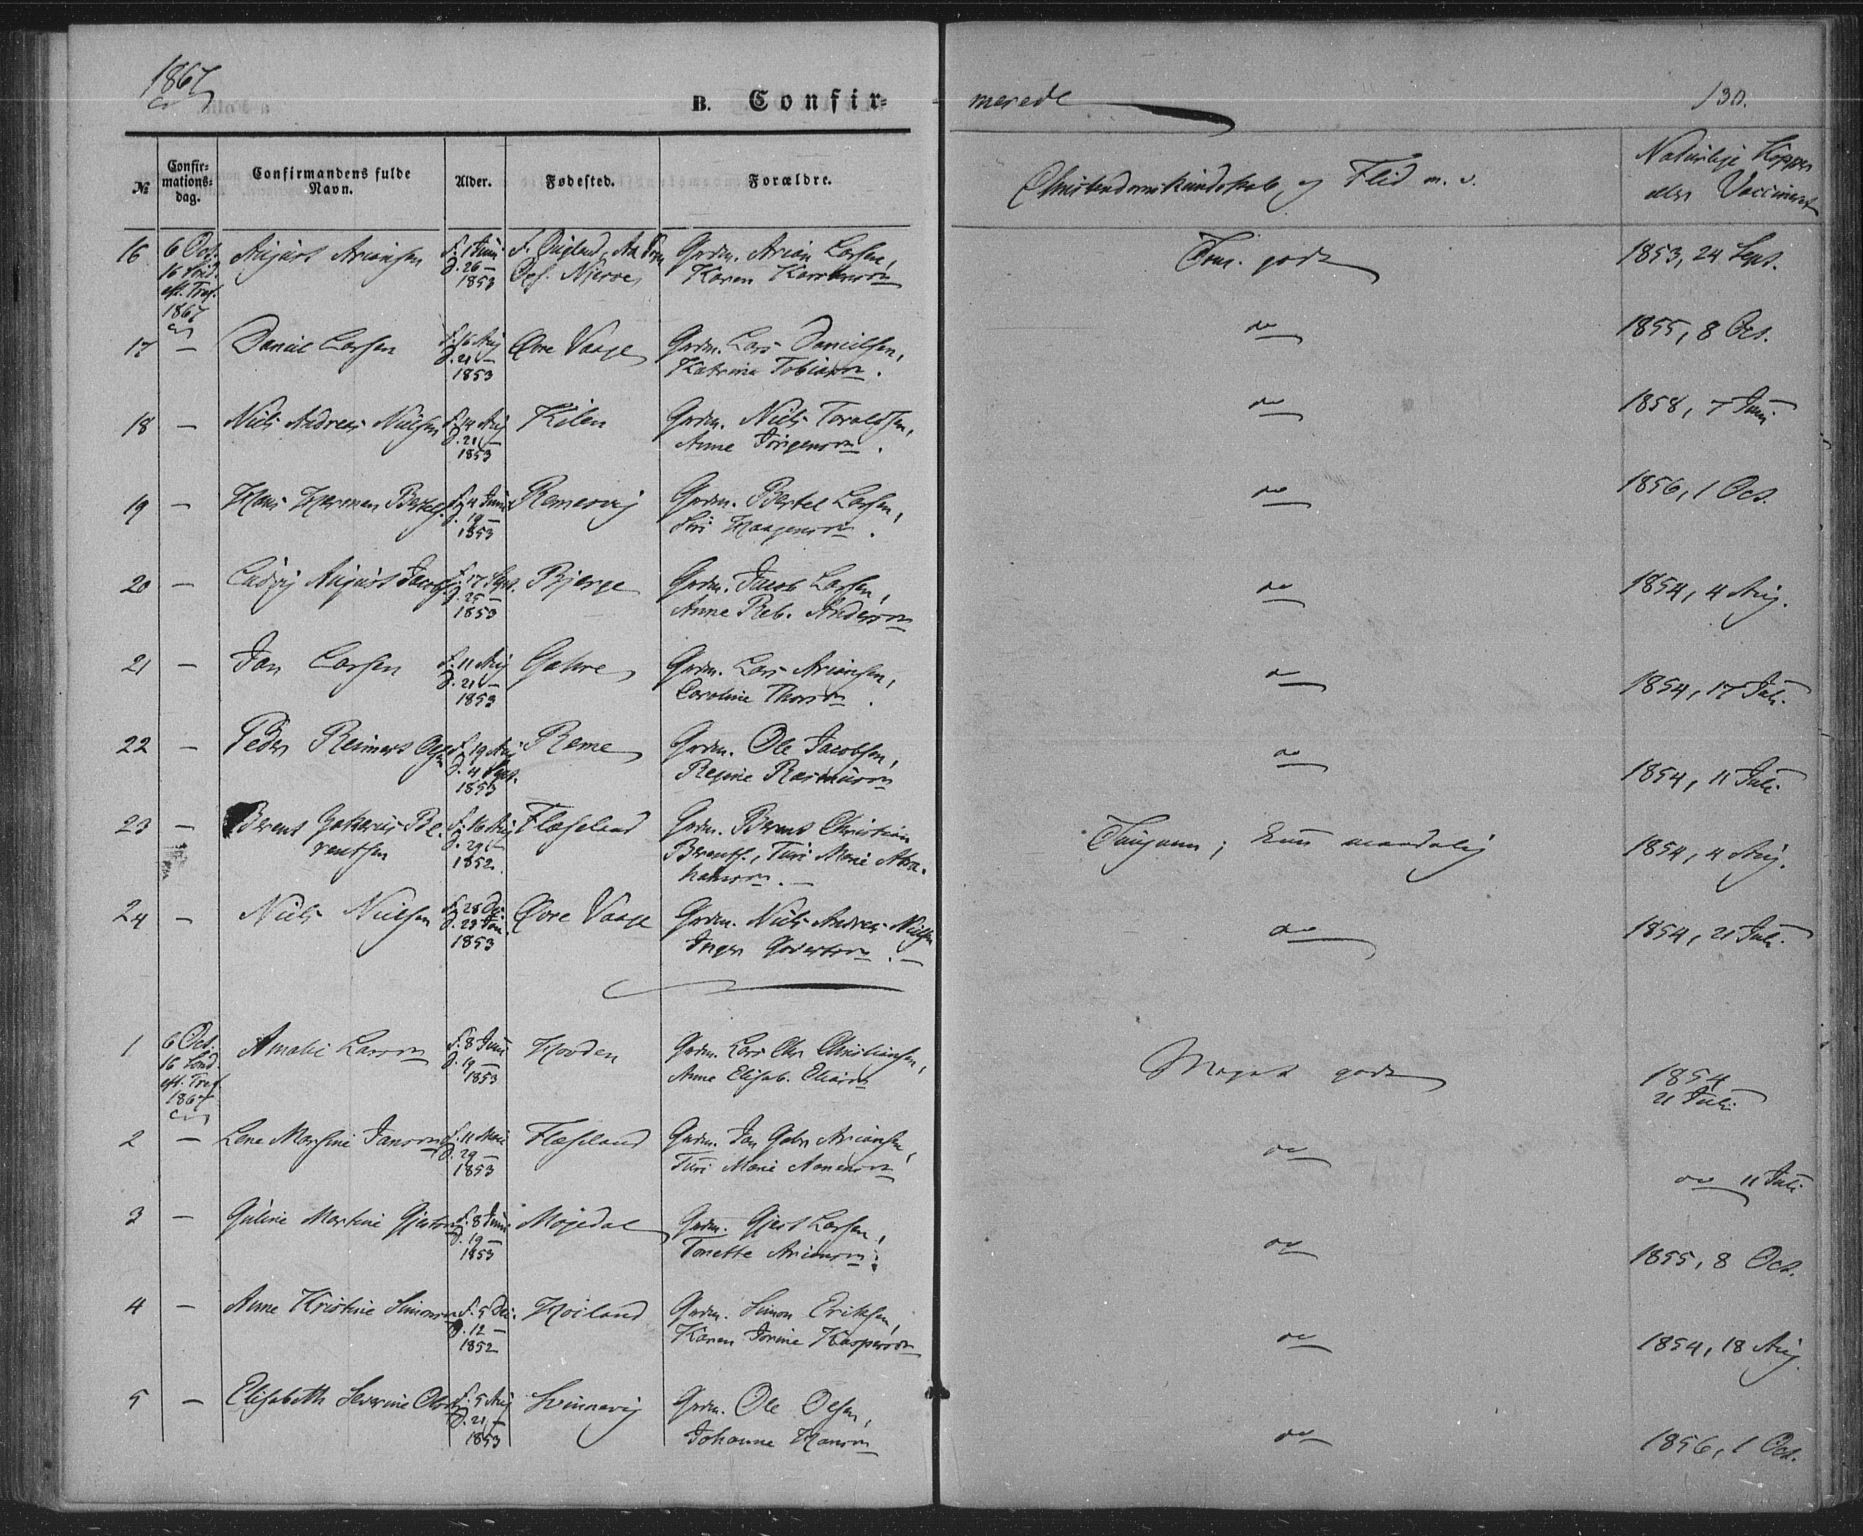 1867
B. Confir-
merede
130.
№
Confir-
mations-
dag.
Confirmandens fulde
Navn.
Alder.
Fødested.
Forældre.
Christendomskundskab og Flid m. v.
Naturlige Kopper
eller Vaccineret
16 6 Oct. August Ariansen f. 1 Juni
16 Sønd. eft. Tref. 1867 d. 26 — 1853
Grdm. Arian Larsen,
Karen
Tem. godt
1853, 24 Sept.
17 — Daniel Larsen f. 15 Aug d. 21 — 1853 Øvre Vaage Grdm. Lars Danielsen,
Katrine Tobiasdn.
do
1855, 8 Oct.
18 — Niels Andreas Nielsen f. 14 Aug d. 21 — 1853 Kilen Grdm. Niels Toraldsen,
Anne Jørgensdn.
do
1858, 7 Juni
19 — Hans Herman Bertels. f. 4 Juni d. 19 — 1853 Remesvig Grdm. Bertel Larsen,
Siri Haagensdn.
do
1856, 1 Oct.
20 — Ludvig August Jacobs. f. 17 Sept. d. 25 — 1853 Bjerge Grdm. Jacob Larsen,
Anne Reb. Andersdn
do
1854, 4 Aug.
21 — Jan Larsen f. 11 Aug d. 21 — 1853 Gahre Grdm. Lars Ariansen,
Caroline Thorsdn.
do
1854, 17 Juli.
22 — Peder Reimert Ols. f. 19 Aug d. 4 Sept. 1853 Reme Grdm. Ole Jacobsen,
Regine Rasmusdn
do
1854, 11 Juli.
23 — Berent Zakarias Be-
rentsen f. 16 Aug d. 29 — 1852 Flaseland Grdm. Berent Christian
Berents., Turi Marie Abra-
hamsdn. —
Taugum; kun maadelig
1854, 4 Aug.
24 — Niels Nielsen f. 28 Dec. d. 23 Jan. 1853 Øvre Vaage Grdm. Niels Andreas Nielsen
Inger
do
1854, 21 Juli.
1 6 Oct. 16 Sønd. eft. Tref. 1867 Amalie Larsdn f. 8 Juni d. 19 — 1853 Hovden Grdm. Lars Chr. Christiansen,
Anne Elisab. Eliasdn
Meget godt
1854
21 Juli
2 — Lene Marsine Jansdn f. 11 Mai d. 29 — 1853 Flaseland Grdm. Jan Gabr. Ariansen,
Turi Marie Aanensdn
do
do 11 Juli
3 — Guline Martine Gjertsdn f. 8 Juni d. 19 — 1853 Møgedal Grdm. Gjert Larsen,
Tonette Ariansdn.
do
1855, 8 Oct.
4 — Anne Kristine Simonsdn f. 5 Dec. d. 12 — 1852 Høiland Grdm. Simon Eriksen,
Karen Jorine Kaspersdn
do
1854, 18 Aug.
5 — Elisabeth Severine Olsdtr f. 5 Aug d. 21 — 1853 Svinnevig Grdm. Ole Olsen,
Johanne Hansdn
do
1856, 1 Oct.